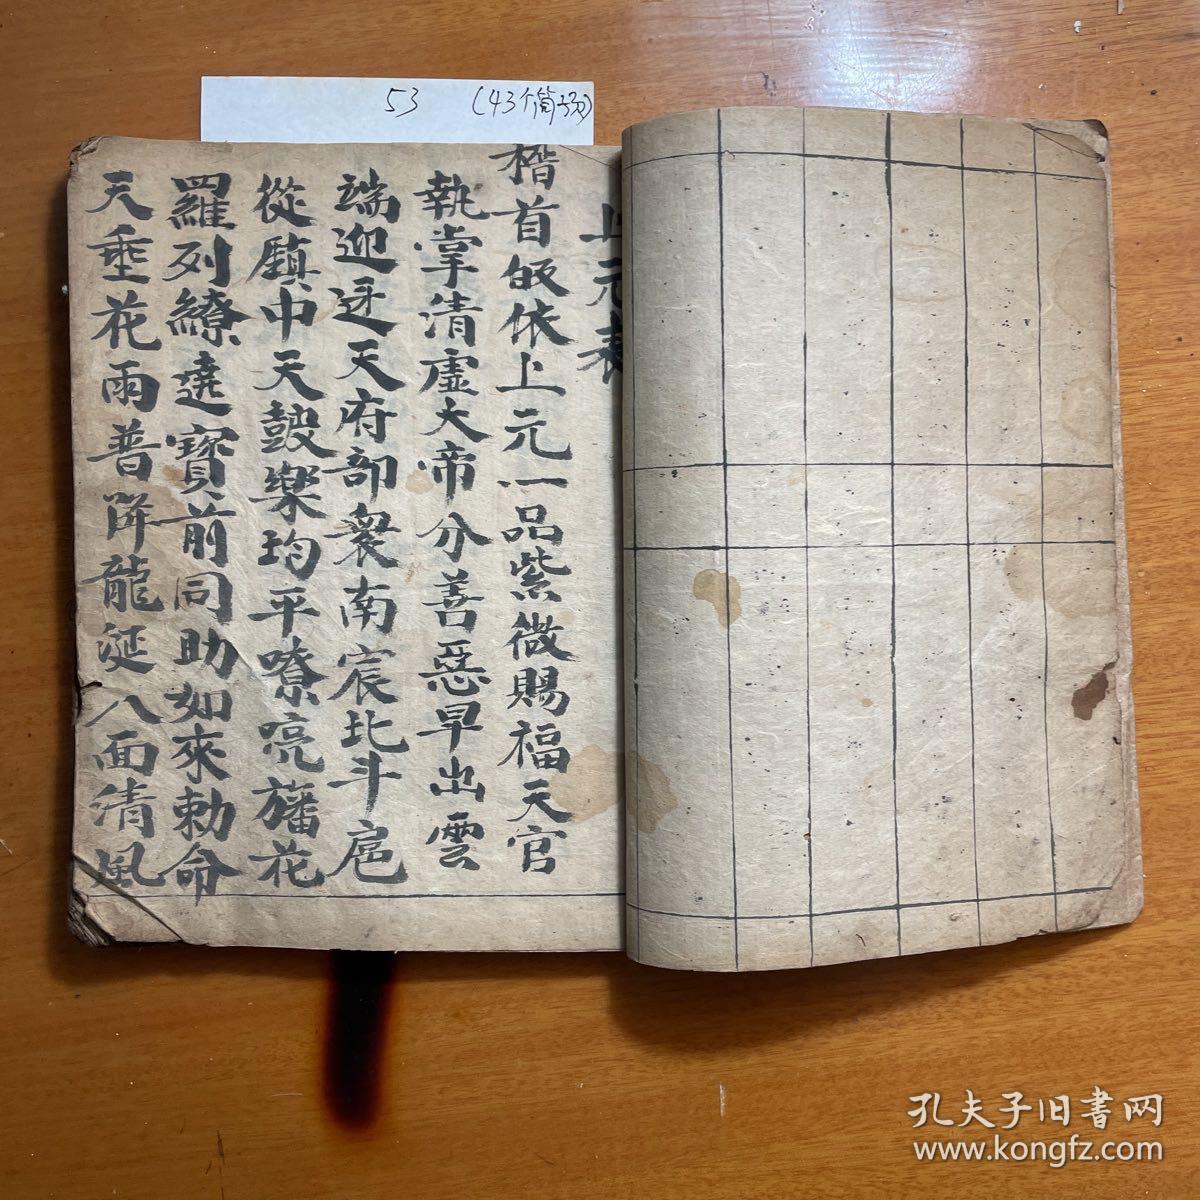 53 (43个筒子页)
上元表
稽首皈依上元一品紫微賜福天官
執掌清虛大帝分善惡早出雲
端迎迓天府部衆南宸北斗扈
從駟中天鼓樂均平嘹亮旛花
羅列繚遶寶前同助如來勅命
天垂花雨普降龍涎八面清風
孔夫子旧書网
www.kongfz.com